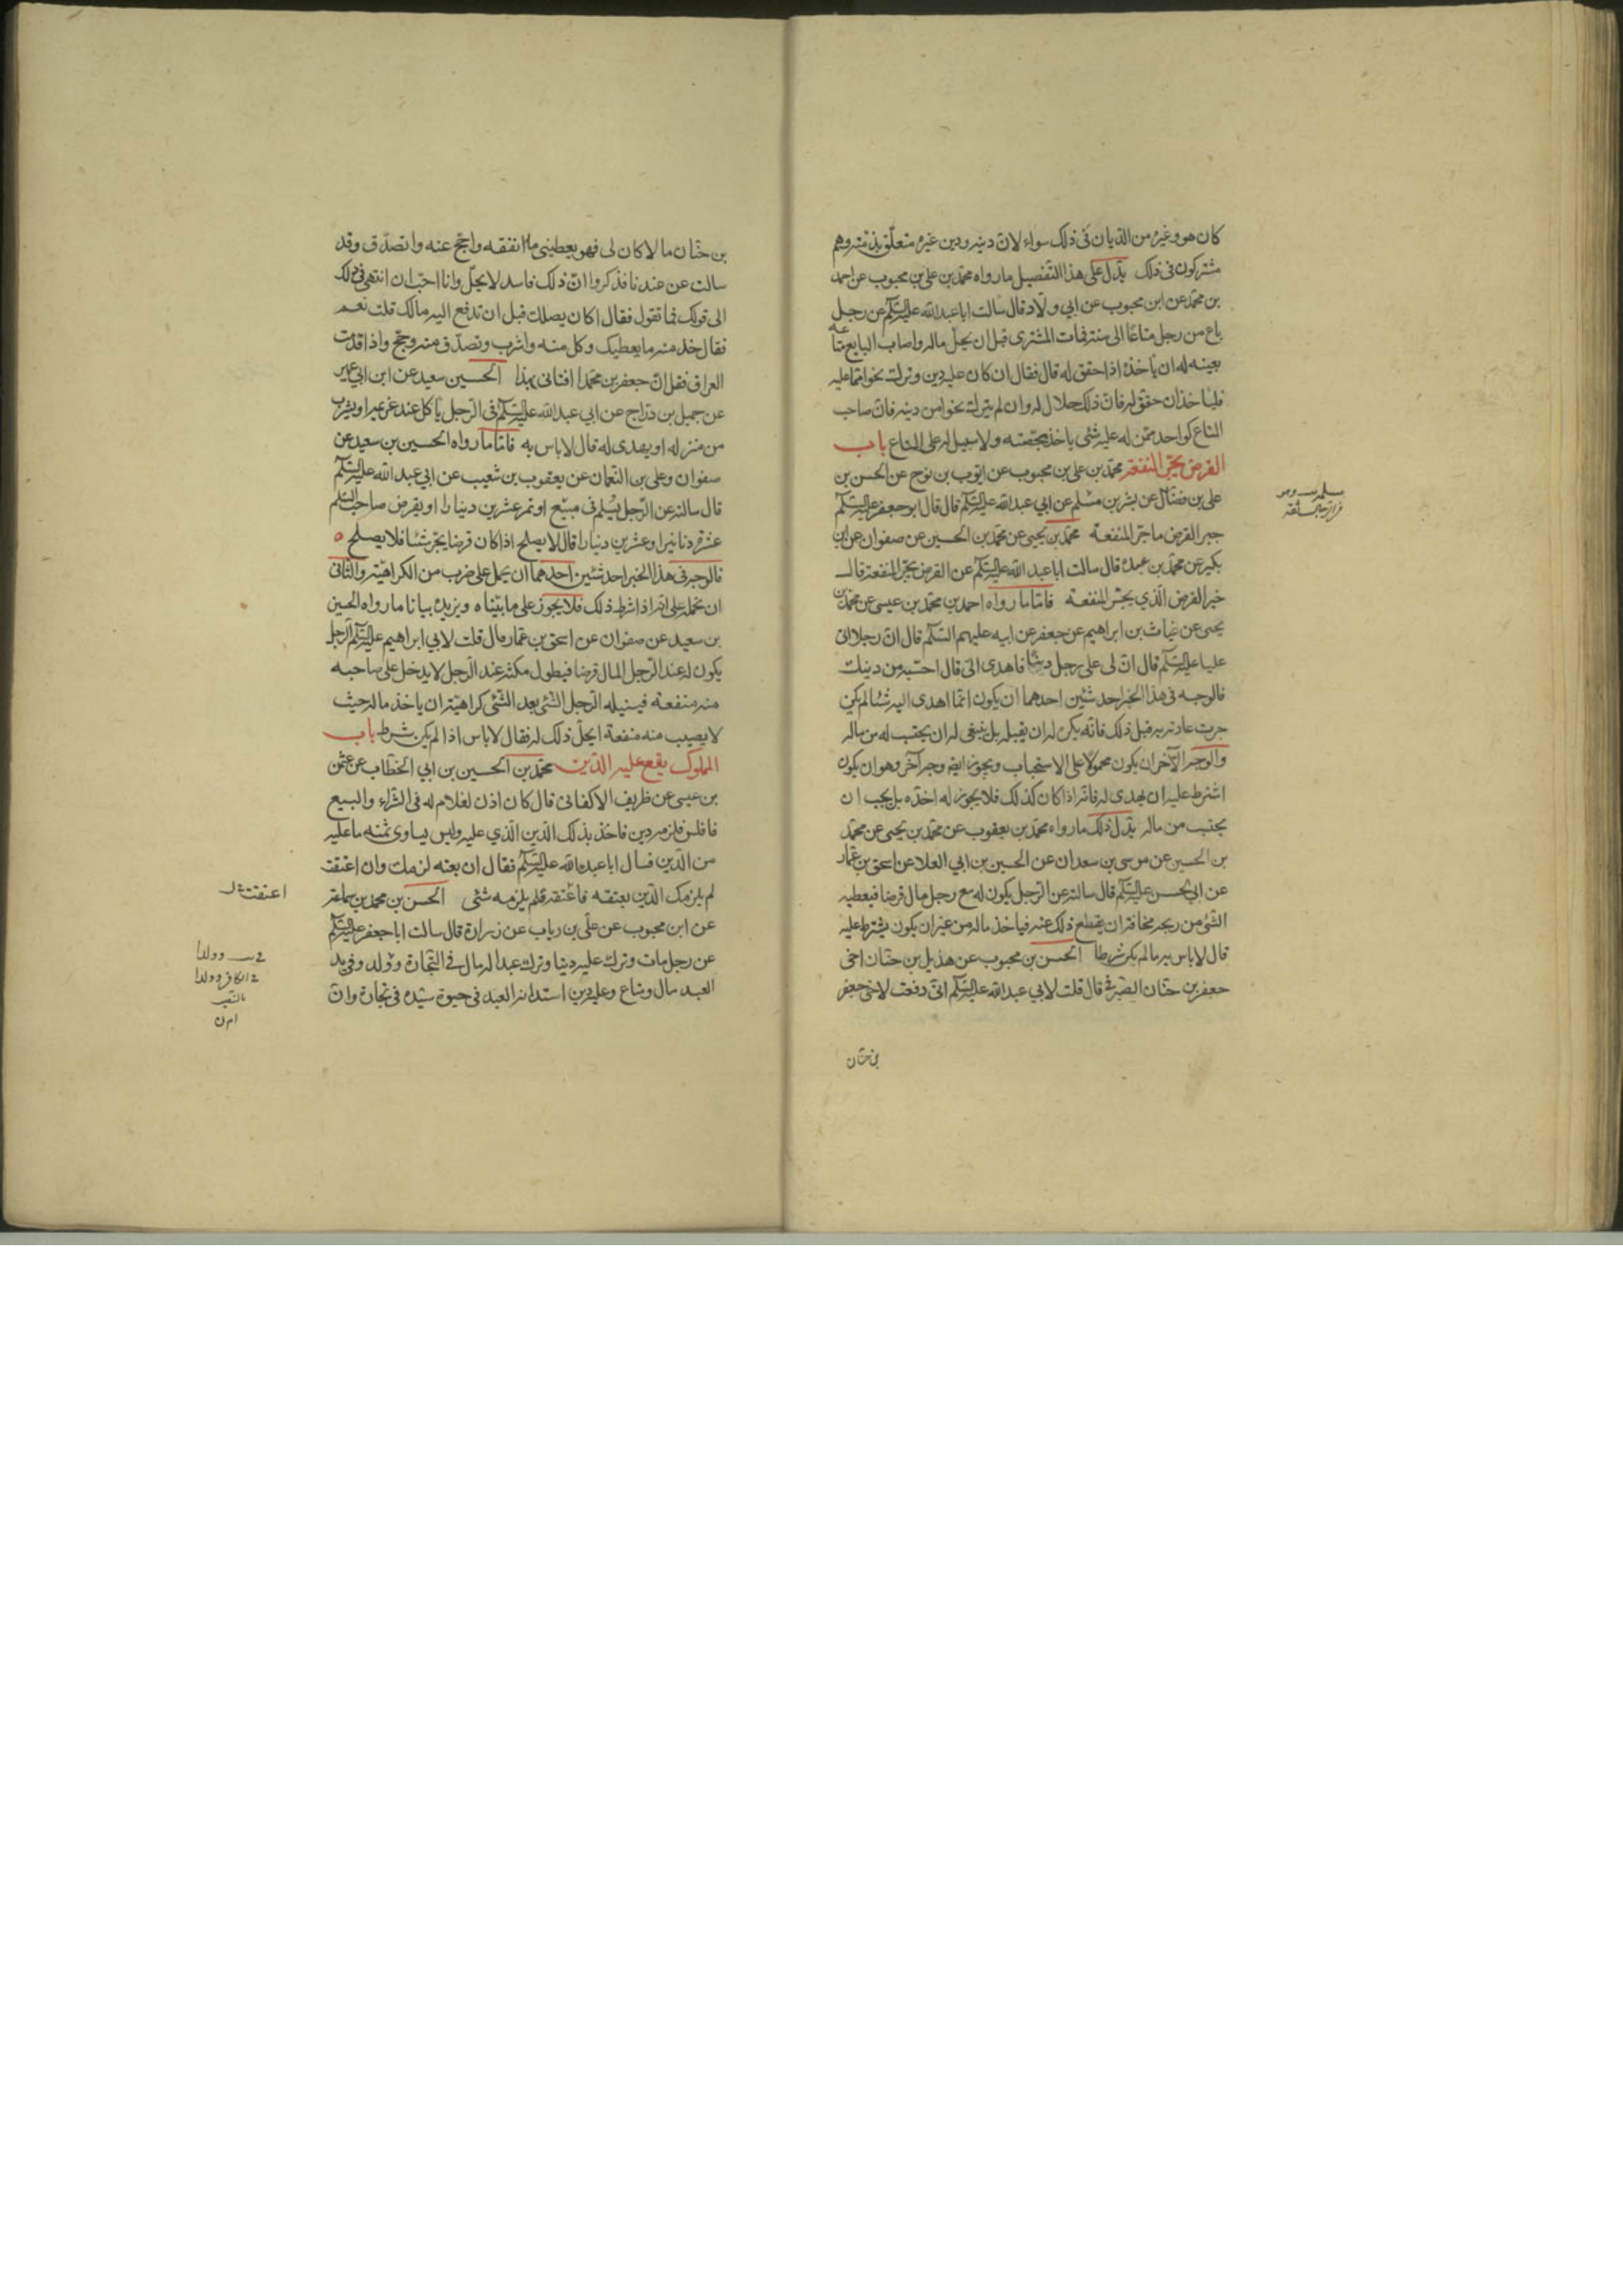 كان هو وغيره من الديان في ذلك سواء لان دينه ودين غيره متعلق بذمته وهم
مشتركون في ذلك يدل على هذا التفصيل ما رواه محمد بن علي بن محبوب عن احمد
بن محمد عن ابن محبوب عن ابي ولاد قال سالت ابا عبد الله عليه السلم عن رجل
باع من رجل متاعا الى سنة فمات المشتري قبل ان يحل ماله واصاب البايع متاعه
بعينه له ان ياخذه اذا حقق له قال فقال ان كان عليه دين وترك نحوا مما عليه
فلياخذ ان حقق له فان ذلك حلال له وان لم يترك نحوا من دينه فان صاحب
المتاع كواحد ممن له عليه شئي ياخذ بحصته ولا سبيل له على المتاع باب
القرض يجر المنفعة محمد بن علي بن محبوب عن ايوب بن نوح عن الحسن بن
علي بن فضال عن بشر بن مسلم عن ابي عبد الله عليه السلم قال قال ابو جعفر عليه السلم
خير القرض ما جر المنفعة محمد بن يحيى عن محمد بن الحسين عن صفوان عن ابن
بكير عن محمد بن عبده قال سالت ابا عبد الله عليه السلم عن القرض يجر المنفعة قال
خير القرض الذي يجر المنفعة فاما ما رواه احمد بن محمد بن عيسى عن محمد بن
يحيى عن غياث بن ابراهيم عن جعفر عن ابيه عليهم السلم قال ان رجلا اتى
عليا عليه السلم قال ان لي على رجل دينا فاهدى الي قال احتسبه من دينك
فالوجه في هذا الخبر احد شئين احدهما ان يكون انما اهدى اليه شئا لم يكن
جرت عادته به قبل ذلك فانه يكره له ان يقبله بل ينبغي له ان يحتسب له من ماله
والوجه الآخر ان يكون محمولا على الاستحباب ويجوز ايضا وجه آخر وهو ان يكون
اشترط عليه ان يهدى له فانه اذا كان كذلك فلا يجوز له اخذه بل يجب ان
يحتسب من ماله يدل ذلك ما رواه محمد بن يعقوب عن محمد بن يحيى عن محمد
بن الحسين عن موسى بن سعدان عن الحسين بن ابي العلا عن اسحق بن عمار
عن ابي الحسن عليه السلم قال سالته عن الرجل يكون له مع رجل مال قرضا فيعطيه
الشئ من ربحه مخافة ان يقطع ذلك عنه فياخذ ماله من غير ان يكون يشترط عليه
قال لا باس به ما لم يكن شرطا الحسن بن محبوب عن هذيل بن حنان اخي
جعفر بن حنان الصيرفي قال قلت لابي عبد الله عليه السلم اني دفعت لاخي جعفر
بن حنان
بن حنان مالا كان لي فهو يعطيني ما انفقه واحج عنه واتصدق وقد
سالت عن عندنا فذكروا ان ذلك فاسد لا يحل وانا احب ان انتهي في ذلك
الى قولك فما تقول فقال اكان يصلك قبل ان تدفع اليه مالك قلت نعم
فقال خذ منه ما يعطيك وكل منه واشرب وتصدق منه وحج واذا قدمت
العراق فقل ان جعفر بن محمد افتاني بهذا الحسين سعيد عن ابن ابي عمير
عن جميل بن دراج عن ابي عبد الله عليه السلم في الرجل ياكل عند غريمه او يشرب
من منزله او يهدى له قال لا باس به فاما ما رواه الحسين بن سعيد عن
صفوان وعلي بن النعمان عن يعقوب بن شعيب عن ابي عبد الله عليه السلم
قال سالته عن الرجل يسلم في مبيع او تمر عشرين دينارا او يقرض صاحب السلم
عشرة دنانير او عشرين دينارا قال لا يصلح اذا كان قرضا يجر شئا فلا يصلح
فالوجه في هذا الخبر احد شئين احدهما ان يحمل على ضرب من الكراهية والثاني
ان نحمله على انه اذا شرط ذلك فلا يجوز على ما بيناه ويزيده بيانا ما رواه الحسين
بن سعيد عن صفوان عن اسحق بن عمار قال قلت لابي ابراهيم عليه السلم الرجل
يكون له عند الرجل المال قرضا فيطول مكثه عند الرجل لا يدخل على صاحبه
منه منفعة فينيله الرجل الشئ بعد الشئ كراهية ان ياخذ ماله حيث
لا يصيب منه منفعة ايحل ذلك له فقال لا باس اذا لم يكن شرط باب
المملوك يقع عليه الدين محمد بن الحسين بن ابي الخطاب عن عثمن
بن عيسى عن ظريف الاكفاني قال كان اذن لغلام له في الشراء والبيع
فافلس فلزمه دين فاخذ بذلك الدين الذي عليه وليس يساوى ثمنه ما عليه
من الدين فسال ابا عبد الله عليه السلم فقال ان بعته لزمك وان اعتقت
لم يلزمك الدين بعتقه فاعتقه فلم يلزمه شئي الحسن بن محمد بن سماعة
عن ابن محبوب عن علي بن رياب عن زرارة قال سالت ابا جعفر عليه السلم
عن رجل مات وترك عليه دينا وترك عبدا له مال في التجارة وولد وفي يد
العبد مال ومتاع وعليه دين استدانه العبد في حيوة سيده في تجارة وان